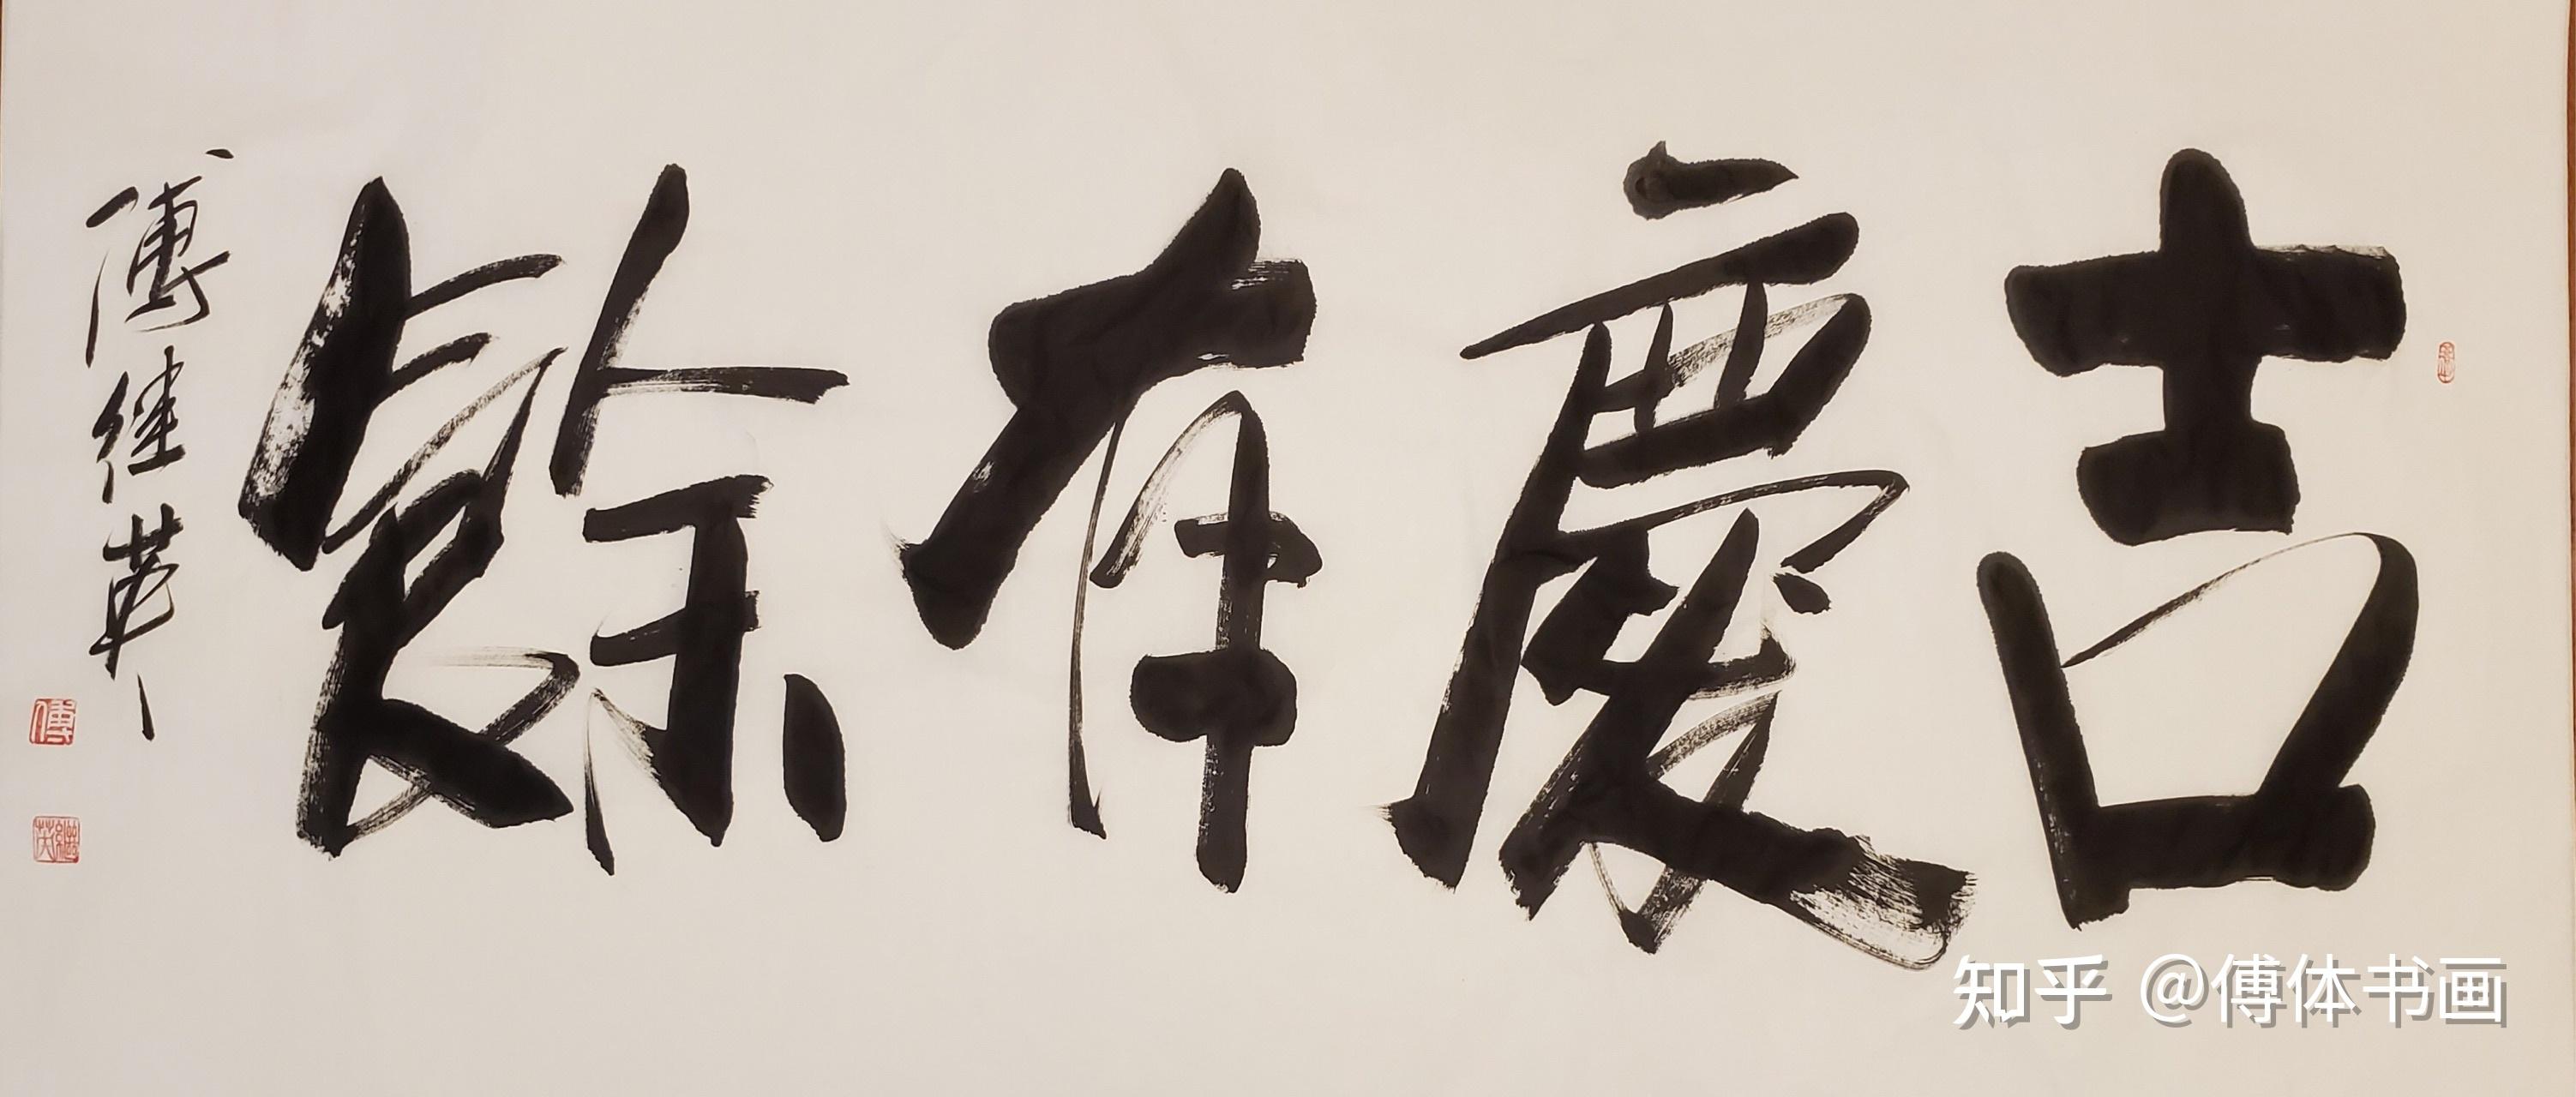 吉慶有餘
傅继英
傅
繼英
知乎 @傅体书画